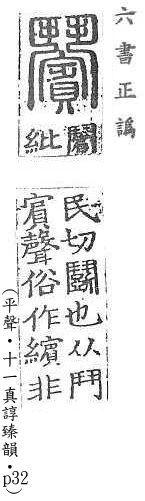 六書正譌
䰔
紕
民切鬭也从鬥
賓聲俗作繽非
(平聲・十一真諄臻韻・p32)